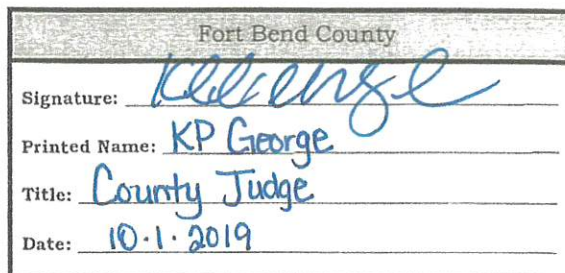 Fort Bend County
Signature:
Printed Name: KP George
Title: County Judge
Date: 10.1.2019